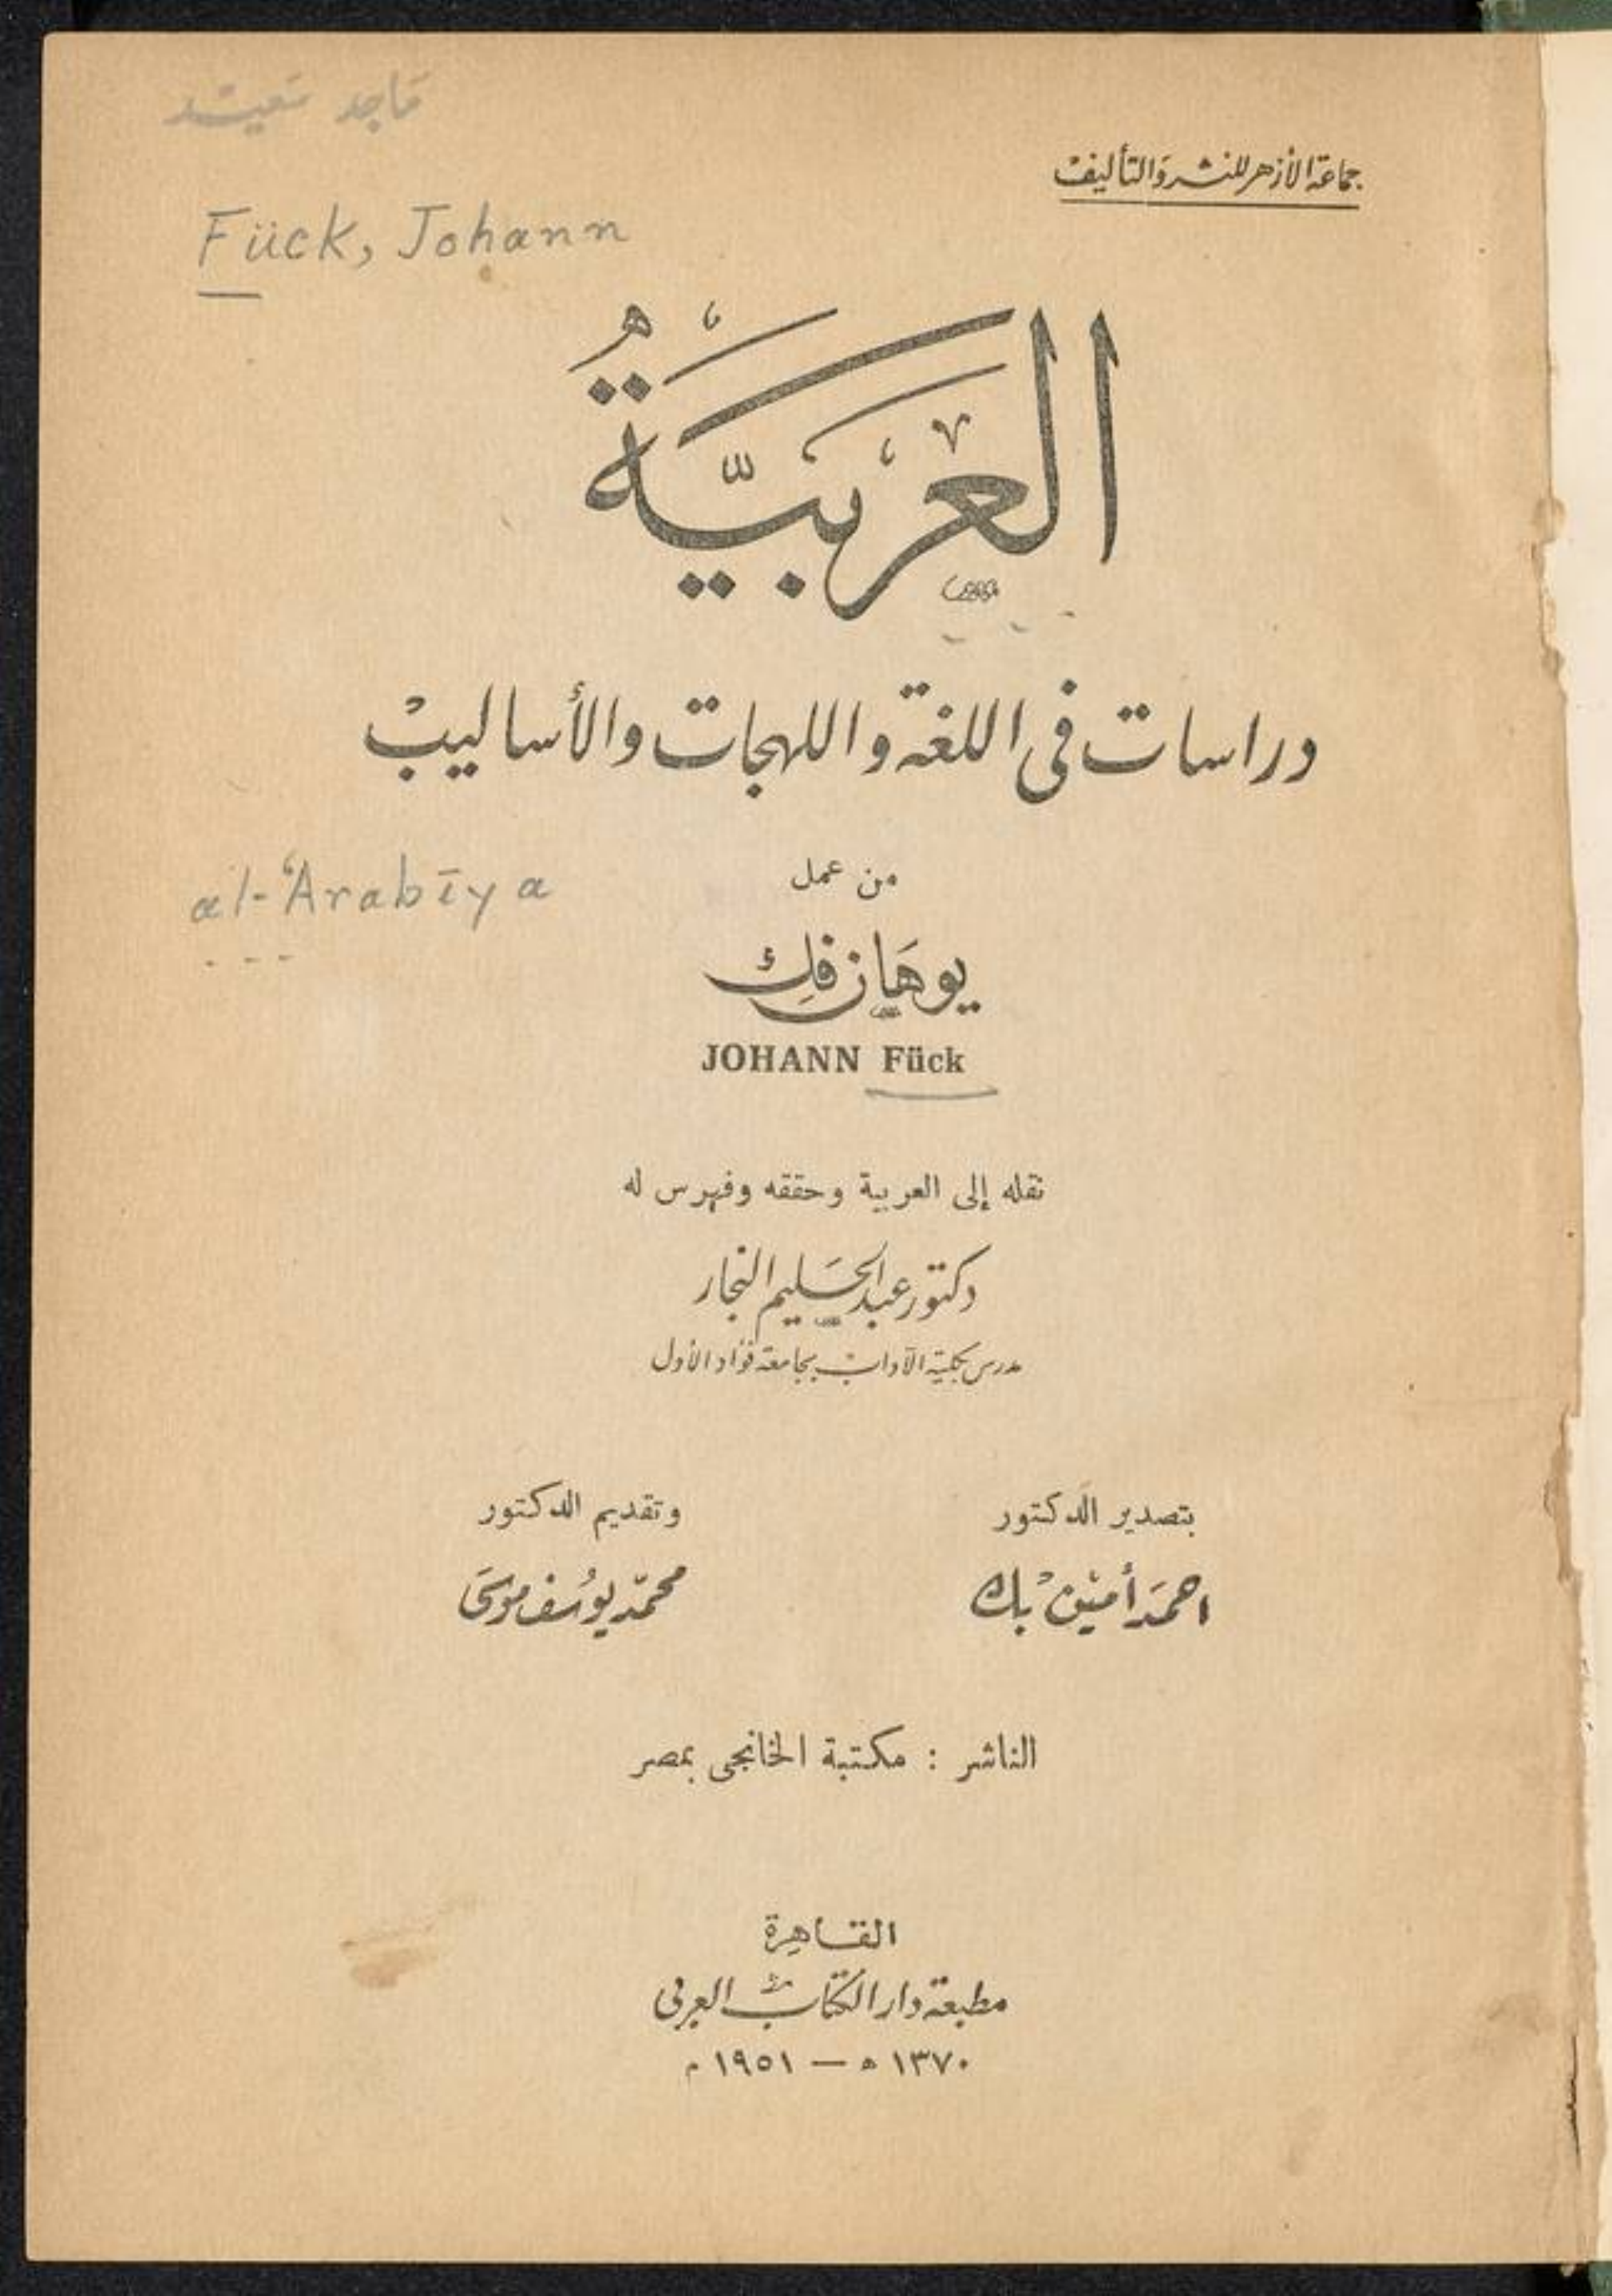 ماجد سعيد
جماعة الأزهر للنشر والتأليف
Fück, Johann
العَرَبيَّةُ
دراسات في اللغة واللهجات والأساليب
من عمل
al-ʿArabīya
يوهَان فك
JOHANN Fück
نقله إلى العربية وحققه وفهرس له
دكتور عبد الحليم النجار
مدرس بكلية الآداب بجامعة فؤاد الأول
بتصدير الدكتور
وتقديم الدكتور
احمَد أمين بك
محمّد يوُسف موسَى
الناشر : مكتبة الخانجى بمصر
القاهرة
مطبعة دار الكتاب العربي
١٣٧٠ ه — ١٩٥١ م